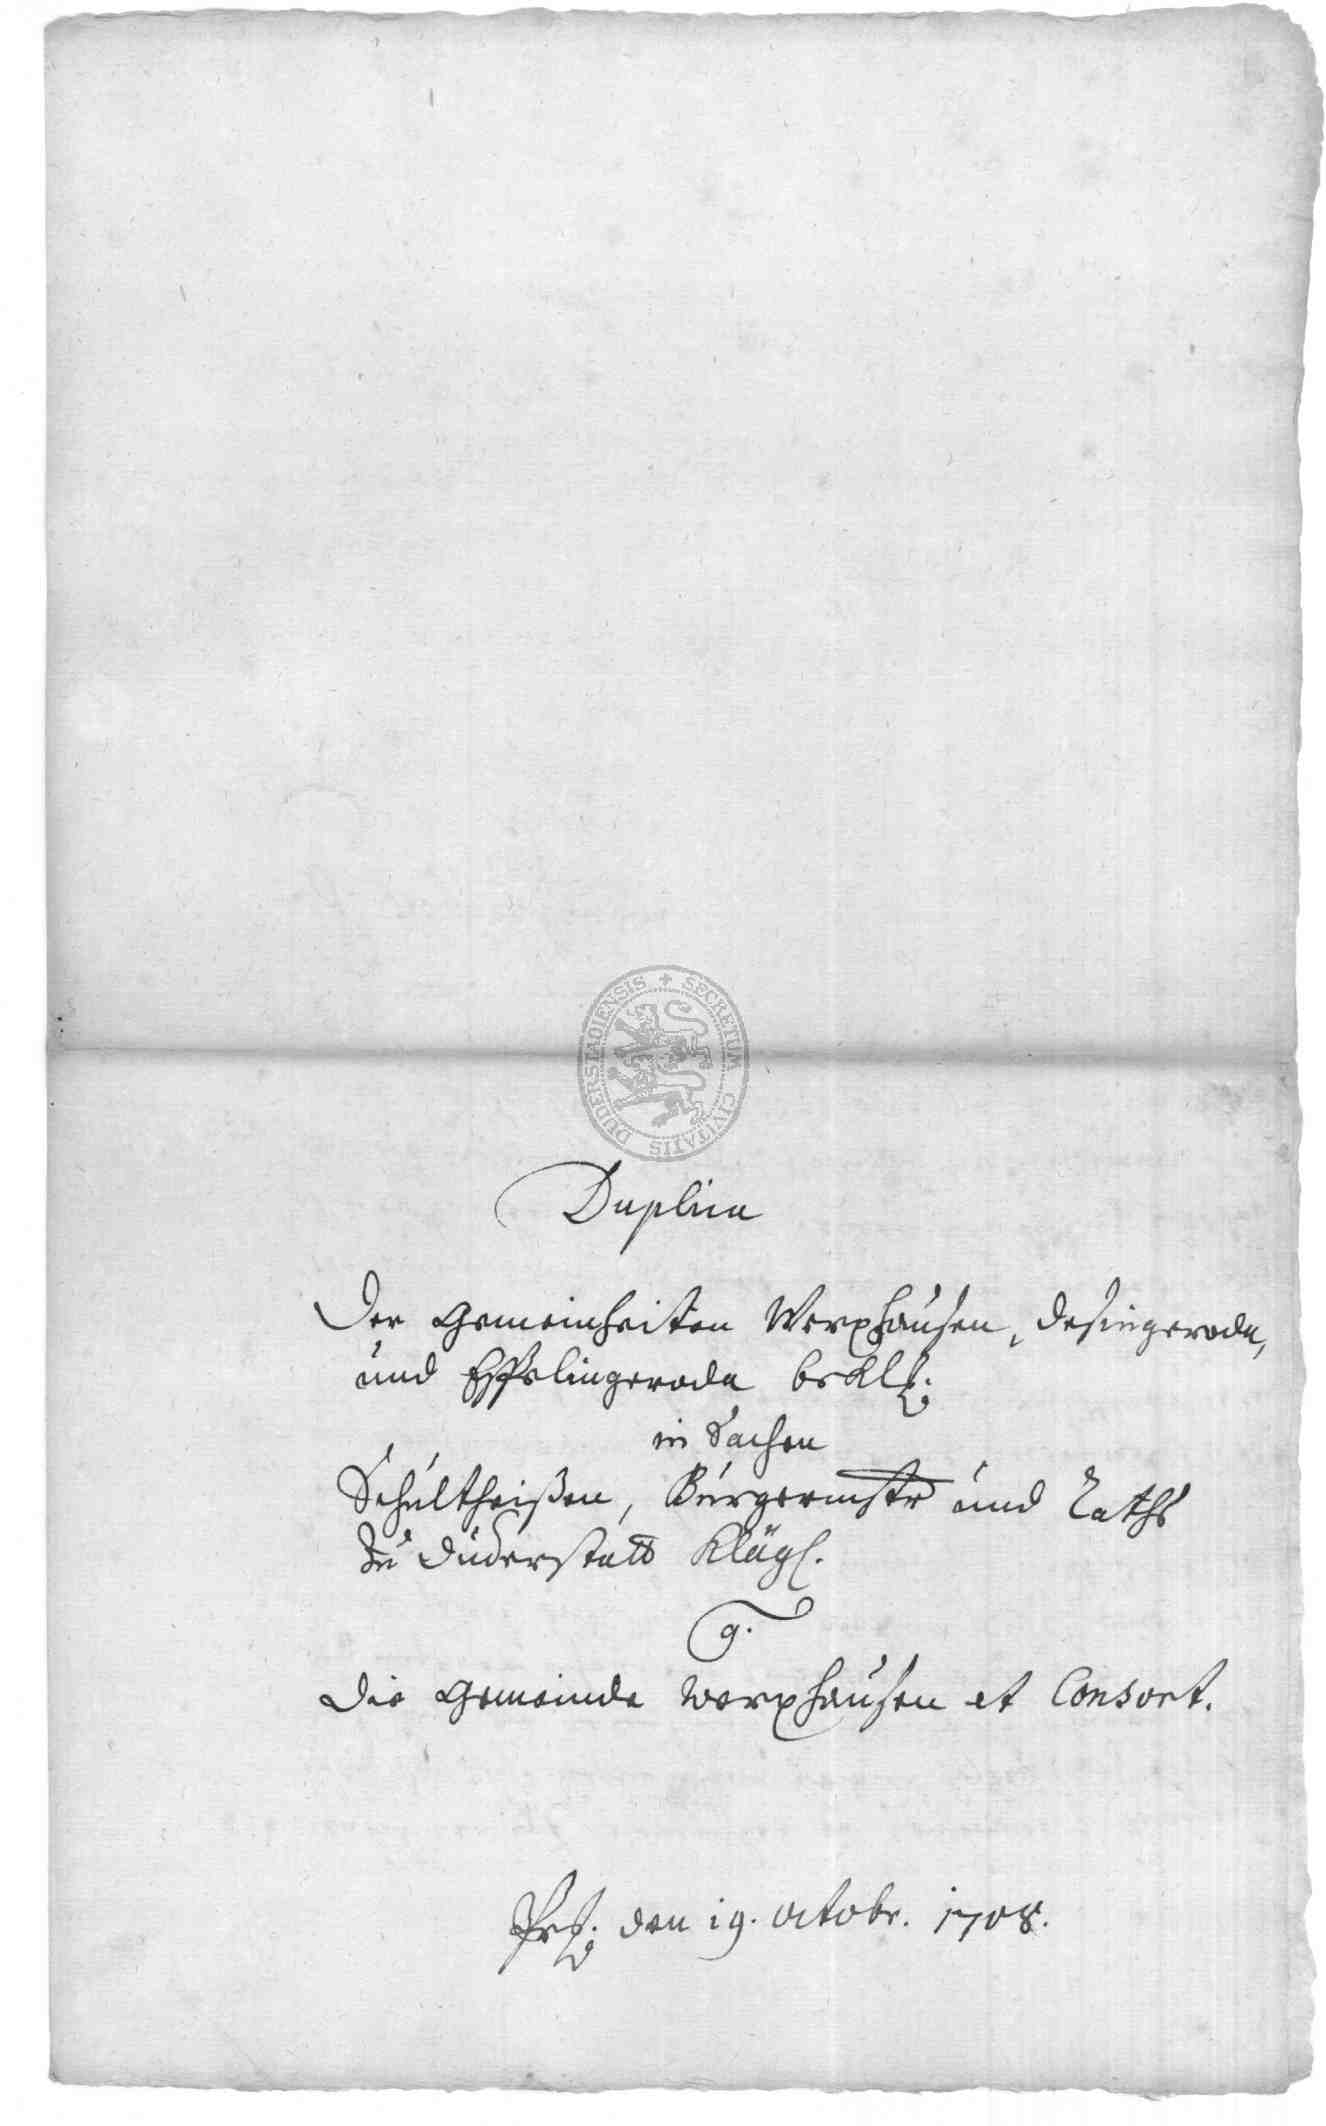 SECRETUM CIVITATIS DUDERSTADIENSIS
Duplica
Der Gemeinheiten Werxhausen, Desingeroda,
und Esseling­eroda bekl:
in Sachen
Schultheißen, Bürgermstr und Raths
zu Duderstatt Klägl.
g.
die Gemeinde Werxhausen et Consort.
Prs: den 19. octobr. 1708.